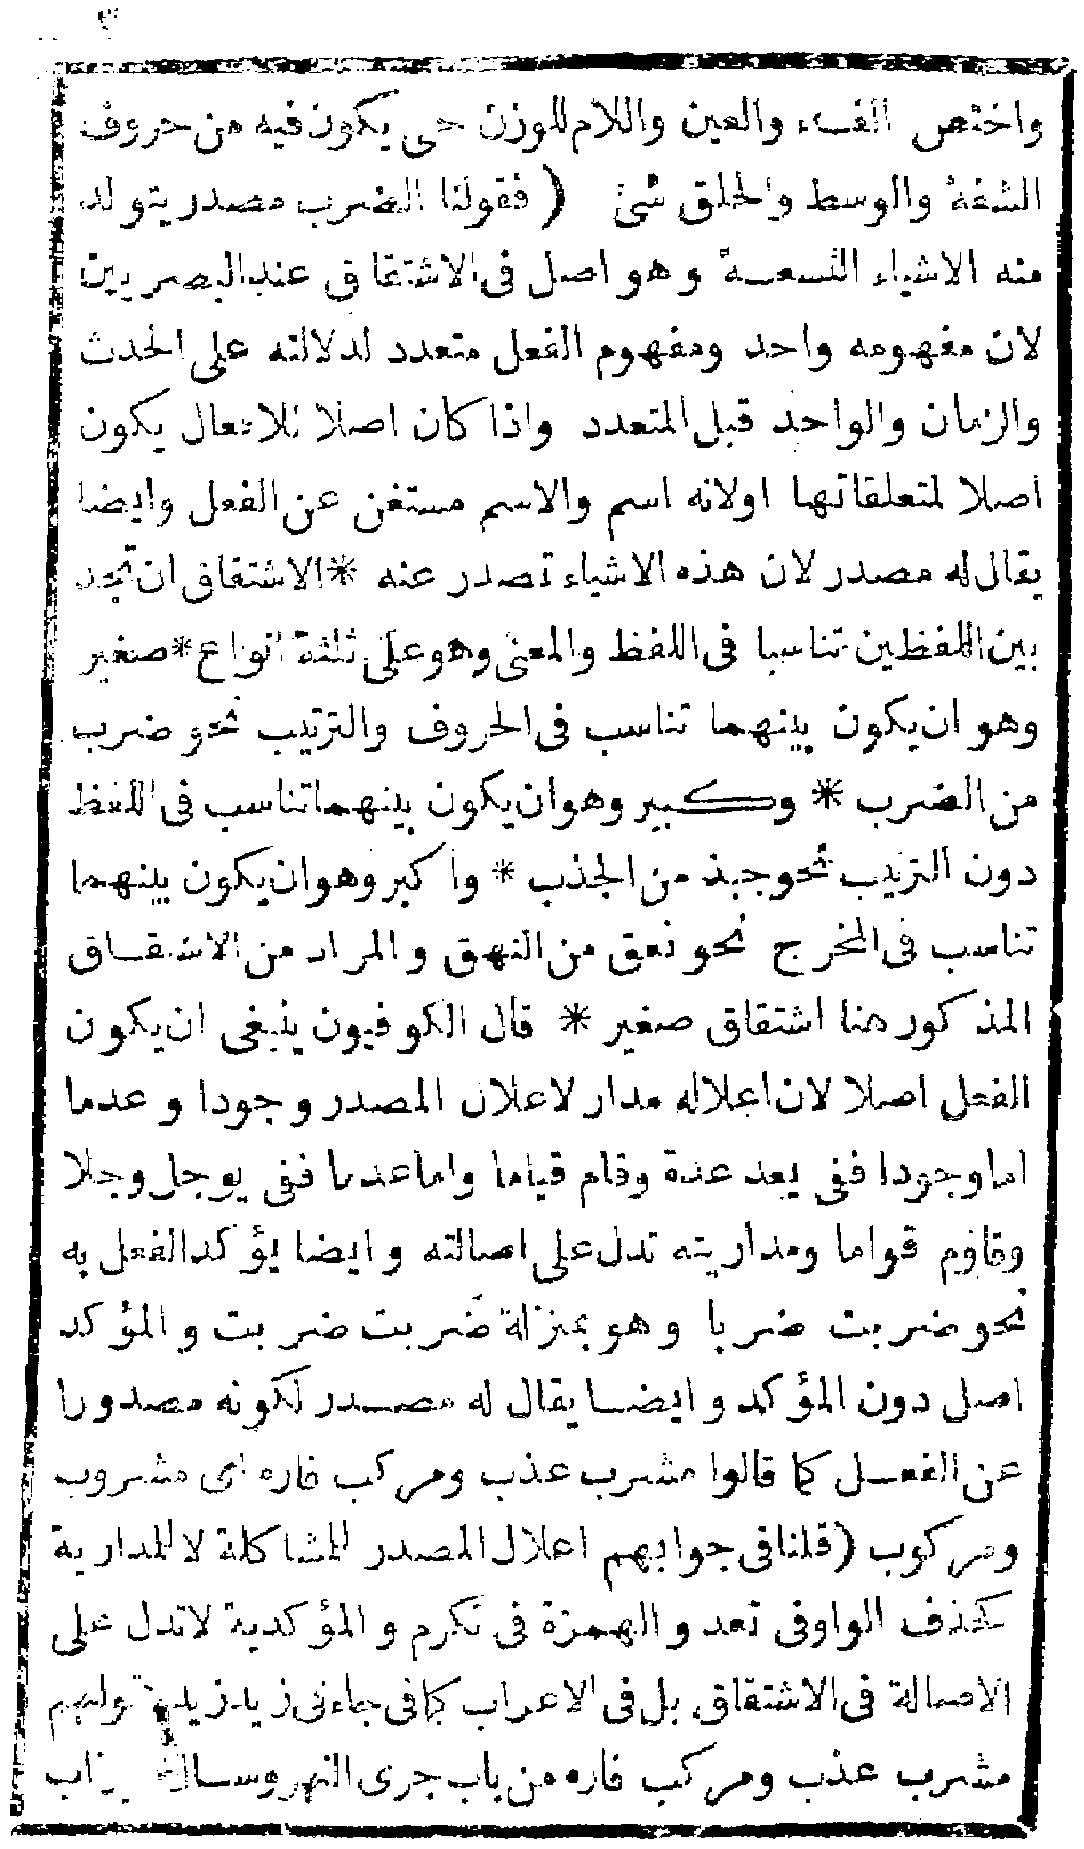 ٣
واختص الفاء والعين واللام للوزن حتى يكون فيه من حروف
الشفة والوسط والحلق شئ ( فقولنا الضرب مصدر يتولد
منه الاشياء التسعة وهو اصل فى الاشتقاق عند البصريين
لان مفهومه واحد ومفهوم الفعل متعدد لدلالته على الحدث
والزمان والواحد قبل المتعدد واذا كان اصلا للافعال يكون
اصلا لمتعلقاتها اولانه اسم والاسم مستغن عن الفعل وايضا
يقال له مصدر لان هذه الاشياء تصدر عنه * الاشتقاق ان تجد
بين اللفظين تناسبا فى اللفظ والمعنى وهو على ثلثة انواع * صغير
وهو ان يكون بينهما تناسب فى الحروف والترتيب نحو ضرب
من الضرب * وكبير وهو ان يكون بينهما تناسب فى اللفظ
دون الترتيب نحو جبذ من الجذب * واكبر وهو ان يكون بينهما
تناسب فى المخرج نحو نعق من النهق والمراد من الاشتقاق
المذكور هنا اشتقاق صغير * قال الكوفيون ينبغى ان يكون
الفعل اصلا لان اعلاله مدار لاعلال المصدر وجودا وعدما
اما وجودا ففى يعد عدة وقام قياما واما عدما ففى يوجل وجلا
وقاوم قواما ومداريته تدل على اصالته وايضا يؤكد الفعل به
نحو ضربت ضربا وهو بمنزلة ضربت ضربت والمؤكد
اصل دون المؤكد وايضا يقال له مصدر لكونه مصدورا
عن الفعل كما قالوا مشرب عذب ومركب فاره اى مشروب
ومركوب ( قلنا فى جوابهم اعلال المصدر للمشاكلة لا للمدارية
كحذف الواو فى تعد والهمزة فى تكرم والمؤكدية لا تدل على
الاصالة فى الاشتقاق بل فى الاعراب كما فى جاءنى زيد زيد وقولهم
مشرب عذب ومركب فاره من باب جرى النهر وسال